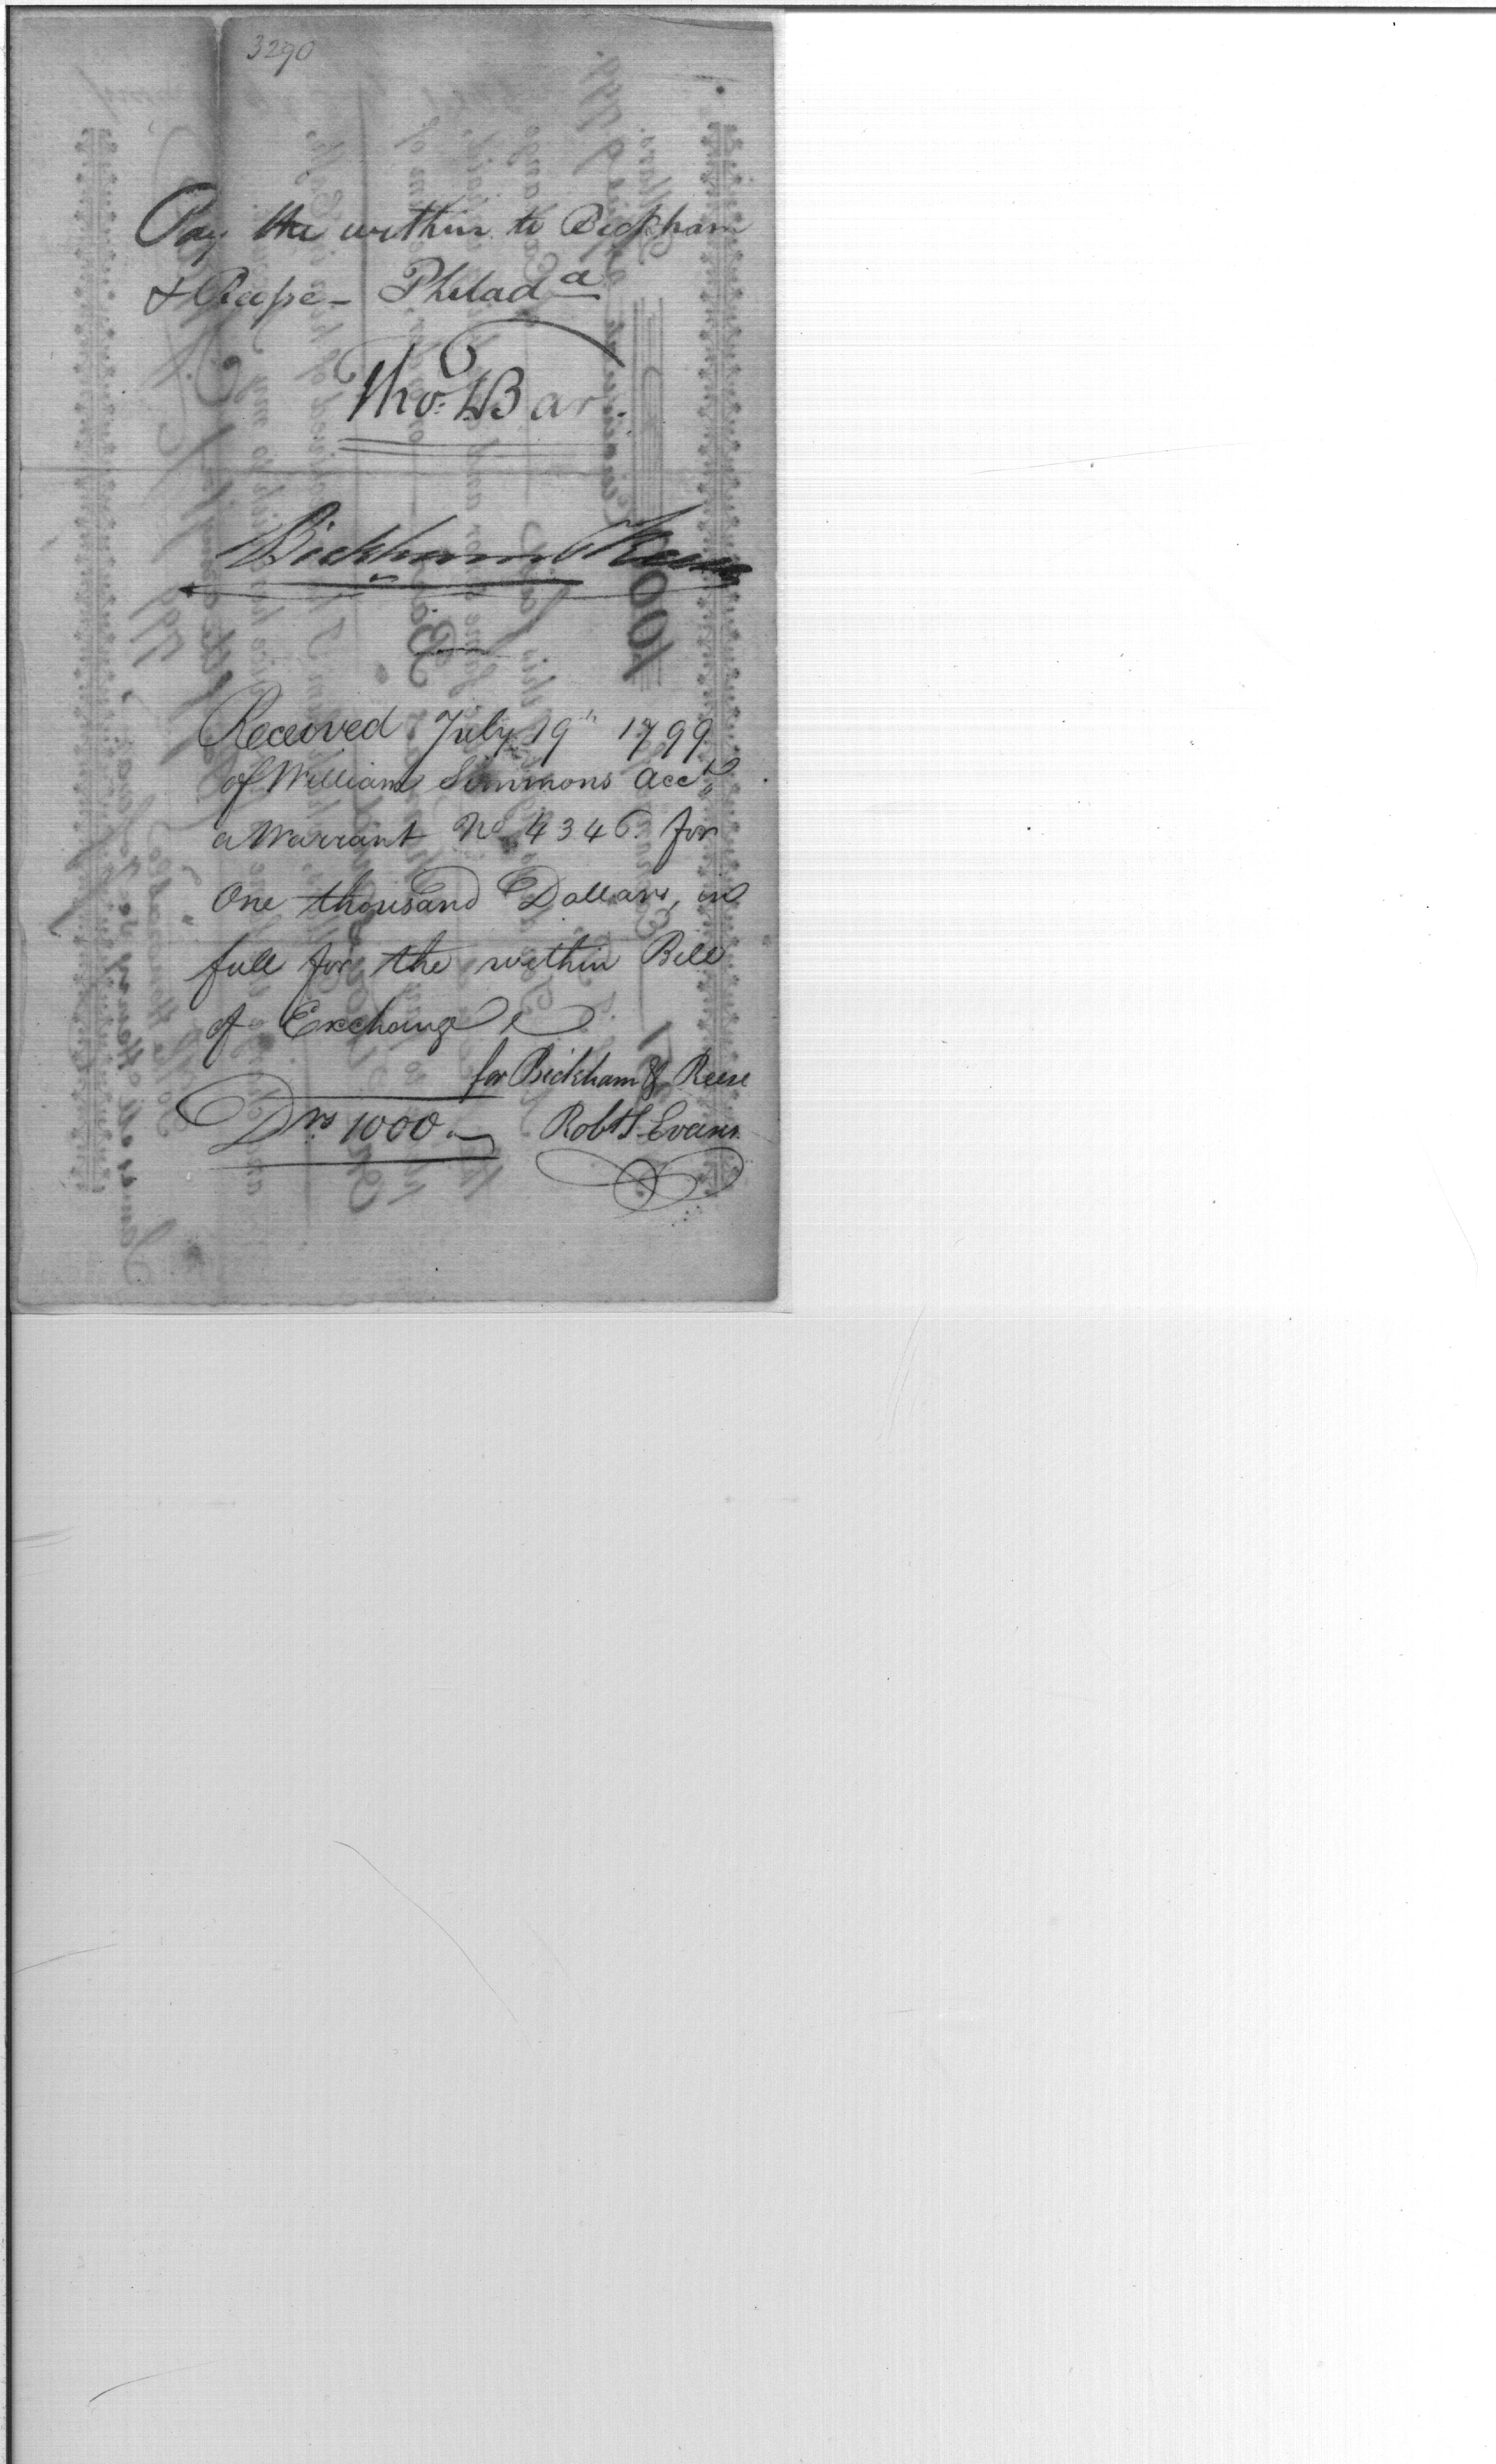 3290
Pay the within to Bickham
& Reese - Philad a
Tho: Bar
Bickham & Reese
Received July 19th 1799
of William Simmons Acct
a Warrant No 4346 for
One thousand Dollars, in
full for the within Bill
of Exchange
for Bickham & Reese
Drs 1000 Robt T Evans